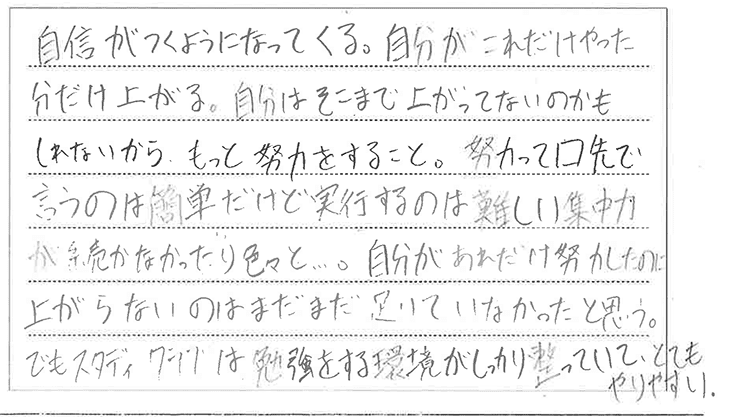 自信がつくようになってくる。自分がこれだけやった
分だけ上がる。自分はそこまで上がってないのかも
しれないから、もっと努力をすること。努力って口先で
言うのは簡単だけど実行するのは難しい集中力
が続かなかったり色々と…。自分があれだけ努力したのに
上がらないのはまだまだ足りていなかったと思う。
でもスタディ は勉強をする環境がしっかり整っていて、とても
やりやすい。